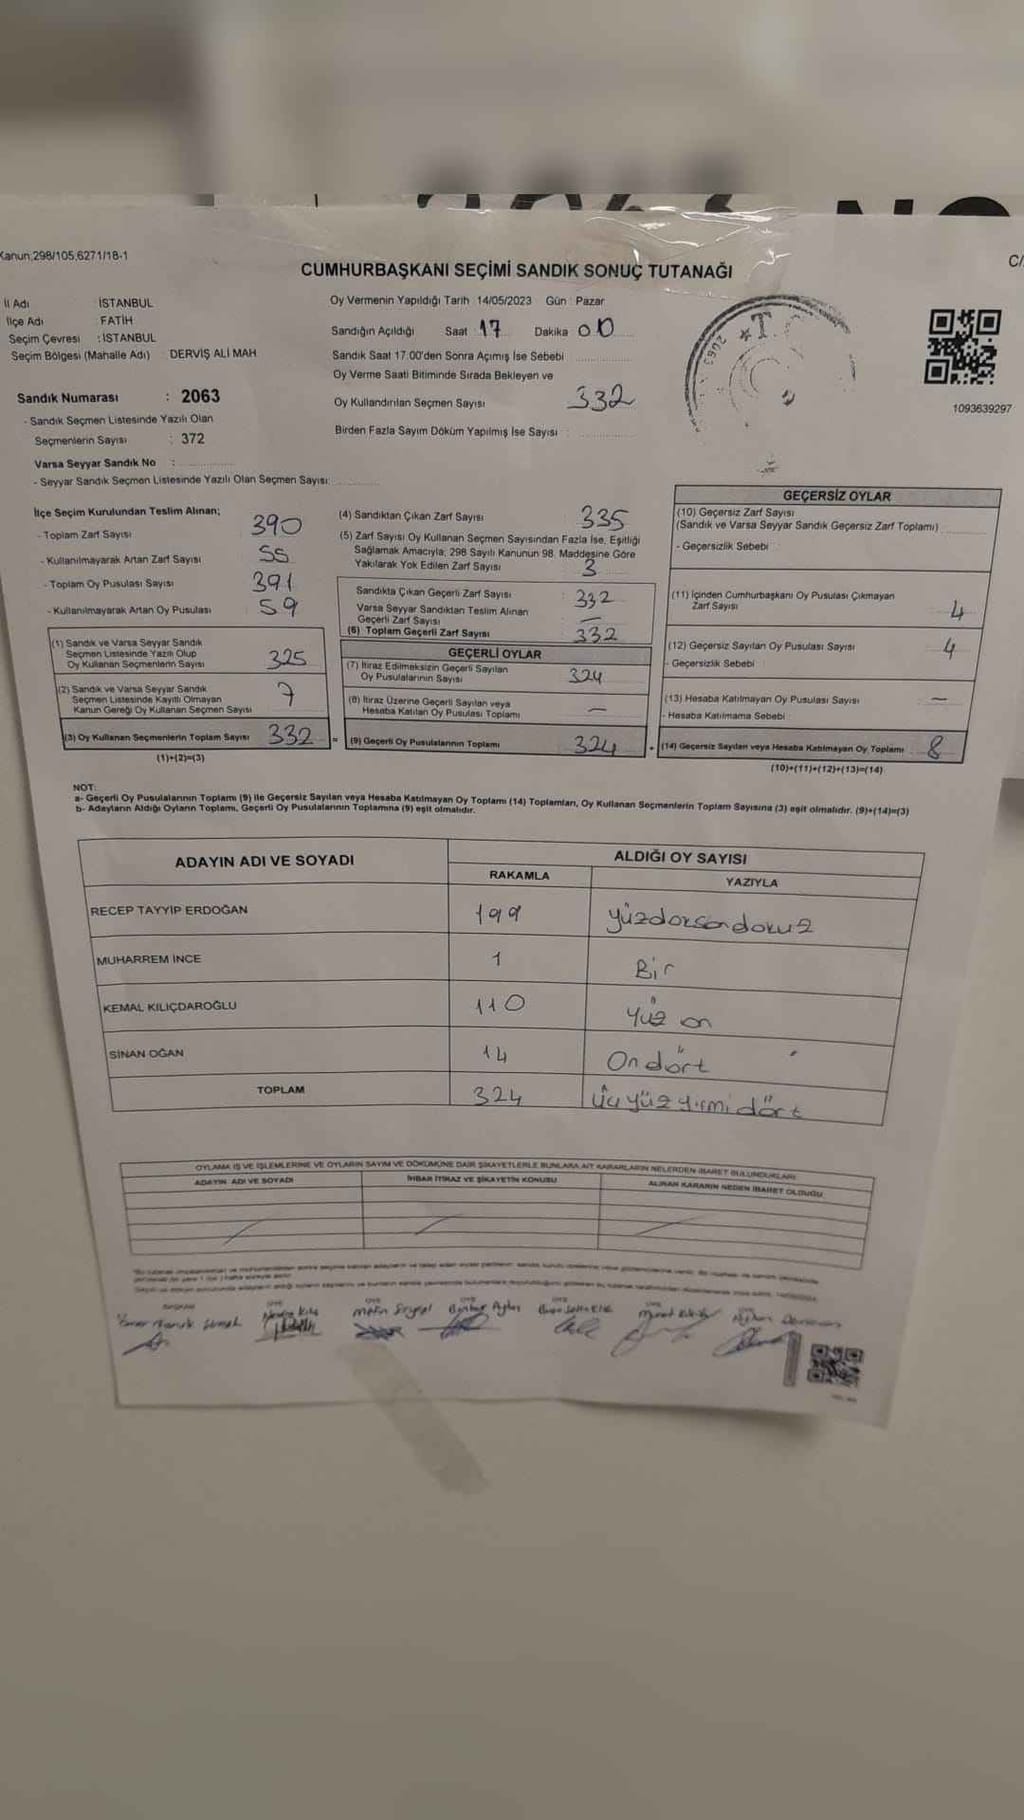 Kanun,298/105,6271/18-1
C/
CUMHURBAŞKANI SEÇİMİ SANDIK SONUÇ TUTANAĞI
İl Adı İSTANBUL
İlçe Adı FATİH
Seçim Çevresi : İSTANBUL
Seçim Bölgesi (Mahalle Adı) DERVİŞ ALİ MAH
Sandık Numarası : 2063
- Sandık Seçmen Listesinde Yazılı Olan
Seçmenlerin Sayısı : 372
Varsa Seyyar Sandık No :
- Seyyar Sandık Seçmen Listesinde Yazılı Olan Seçmen Sayısı:
Oy Vermenin Yapıldığı Tarih 14/05/2023 Gün : Pazar
Sandığın Açıldığı Saat 17 Dakika 00
Sandık Saat 17.00'den Sonra Açımış İse Sebebi
Oy Verme Saati Bitiminde Sırada Bekleyen ve
Oy Kullandırılan Seçmen Sayısı 332
Birden Fazla Sayım Döküm Yapılmış İse Sayısı :
T.
2063
1093639297
İlçe Seçim Kurulundan Teslim Alınan;
- Toplam Zarf Sayısı 390
- Kullanılmayarak Artan Zarf Sayısı 55
- Toplam Oy Pusulası Sayısı 391
- Kullanılmayarak Artan Oy Pusulası 59
(1) Sandık ve Varsa Seyyar Sandık
Seçmen Listesinde Yazılı Olup
Oy Kullanan Seçmenlerin Sayısı 325
(2) Sandık ve Varsa Seyyar Sandık
Seçmen Listesinde Kayıtlı Olmayan
Kanun Gereği Oy Kullanan Seçmen Sayısı 7
(3) Oy Kullanan Seçmenlerin Toplam Sayısı 332
(1)+(2)=(3)
(4) Sandıktan Çıkan Zarf Sayısı 335
(5) Zarf Sayısı Oy Kullanan Seçmen Sayısından Fazla İse, Eşitliği
Sağlamak Amacıyla; 298 Sayılı Kanunun 98. Maddesine Göre
Yakılarak Yok Edilen Zarf Sayısı 3
Sandıkta Çıkan Geçerli Zarf Sayısı : 332
Varsa Seyyar Sandıktan Teslim Alınan
Geçerli Zarf Sayısı : —
(6) Toplam Geçerli Zarf Sayısı 332
GEÇERLİ OYLAR
(7) İtiraz Edilmeksizin Geçerli Sayılan
Oy Pusulalarının Sayısı 324
(8) İtiraz Üzerine Geçerli Sayılan veya
Hesaba Katılan Oy Pusulası Toplamı —
= (9) Geçerli Oy Pusulalarının Toplamı 324
GEÇERSİZ OYLAR
(10) Geçersiz Zarf Sayısı
(Sandık ve Varsa Seyyar Sandık Geçersiz Zarf Toplamı)
- Geçersizlik Sebebi
(11) İçinden Cumhurbaşkanı Oy Pusulası Çıkmayan
Zarf Sayısı 4
(12) Geçersiz Sayılan Oy Pusulası Sayısı 4
- Geçersizlik Sebebi
(13) Hesaba Katılmayan Oy Pusulası Sayısı —
- Hesaba Katılmama Sebebi
+ (14) Geçersiz Sayılan veya Hesaba Katılmayan Oy Toplamı 8
(10)+(11)+(12)+(13)=(14)
NOT:
a- Geçerli Oy Pusulalarının Toplamı (9) ile Geçersiz Sayılan veya Hesaba Katılmayan Oy Toplamı (14) Toplamları, Oy Kullanan Seçmenlerin Toplam Sayısına (3) eşit olmalıdır. (9)+(14)=(3)
b- Adayların Aldığı Oyların Toplamı, Geçerli Oy Pusulalarının Toplamına (9) eşit olmalıdır.
ADAYIN ADI VE SOYADI
ALDIĞI OY SAYISI
RAKAMLA YAZIYLA
RECEP TAYYİP ERDOĞAN 199 yüzdoksandokuz
MUHARREM İNCE 1 Bir
KEMAL KILIÇDAROĞLU 110 Yüz on
SİNAN OĞAN 14 On dört
TOPLAM 324 üçyüz yirmi dört
OYLAMA İŞ VE İŞLEMLERİNE VE OYLARIN SAYIM VE DÖKÜMÜNE DAİR ŞİKAYETLERLE BUNLARA AİT KARARLARIN NELERDEN İBARET BULUNDUKLARI
ADAYIN ADI VE SOYADI İHBAR İTİRAZ VE ŞİKAYETİN KONUSU ALINAN KARARIN NEDEN İBARET OLDUĞU